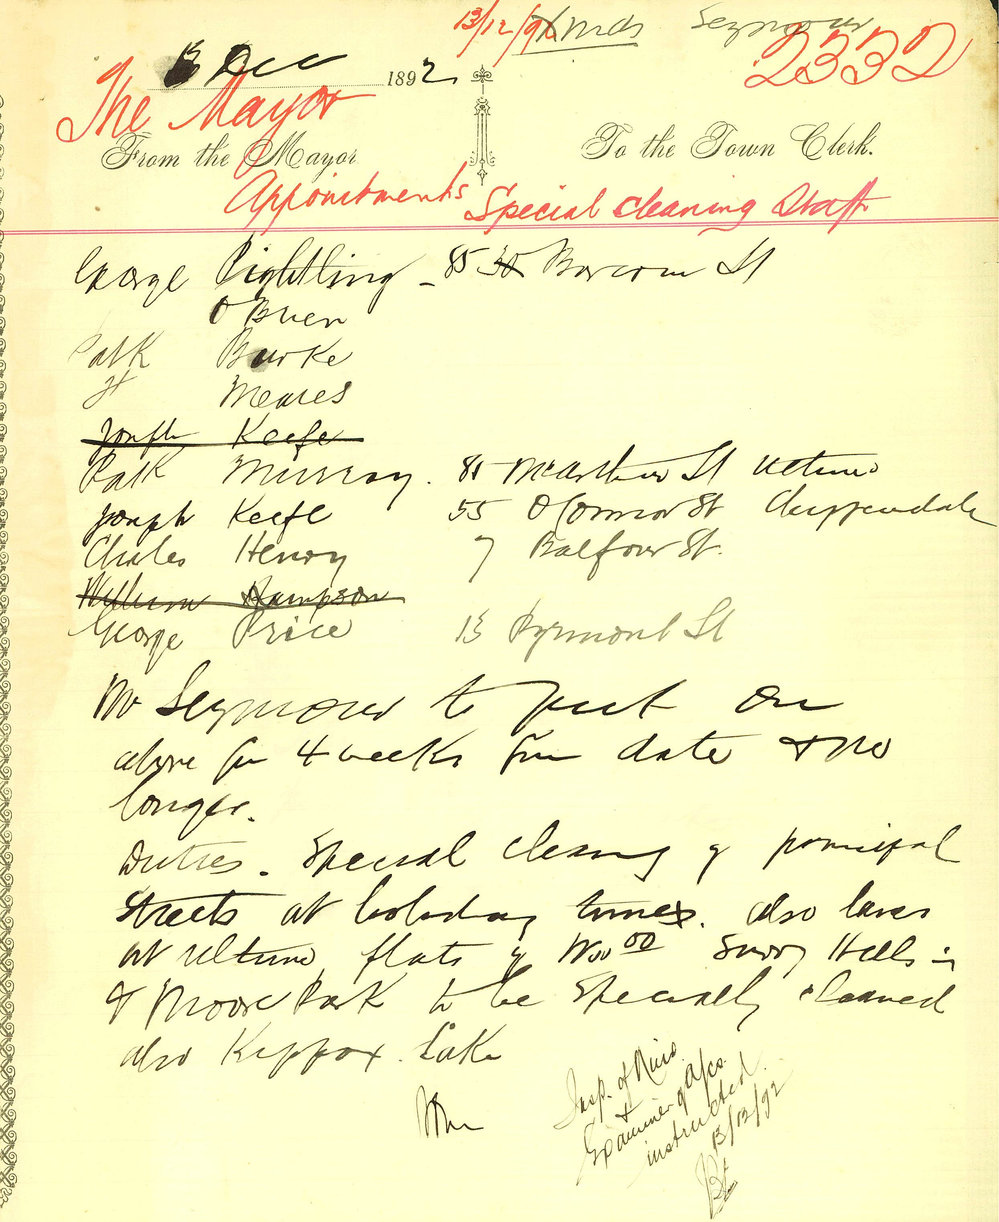 13/12/92 Seymour
2332
13 Dec 1892
The Mayor
From the Mayor To the Town Clerk.
Appointments Special Cleaning Staff
George Rightling - 85 30 Barcom St
O'Brien
Patk Burke
H Meares
Joseph Keefe
Patk Murray. 85 McArthur St Ultimo
Joseph Keefe 55 O'Connor St Chippendale
Charles Henry 7 Balfour St.
William Sampson
George Price 13 Pyrmont St
Mr Seymour to put on
above for 4 weeks from date & no
longer.
Duties. Special cleaning of principal
streets at holiday times. also lanes
at Ultimo, flats of Woo oo Surry Hills
& Moore Park to be specially cleaned
also Kippax Lake
Insp. of Nuis
&
Examiner of A/cs.
instructed
13/12/92